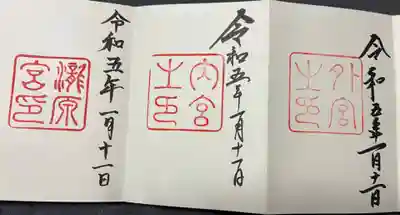 令和五年一月十一日
外宮
之印
令和五年一月十一日
内宮
之印
令和五年一月十一日
瀧原
宮印